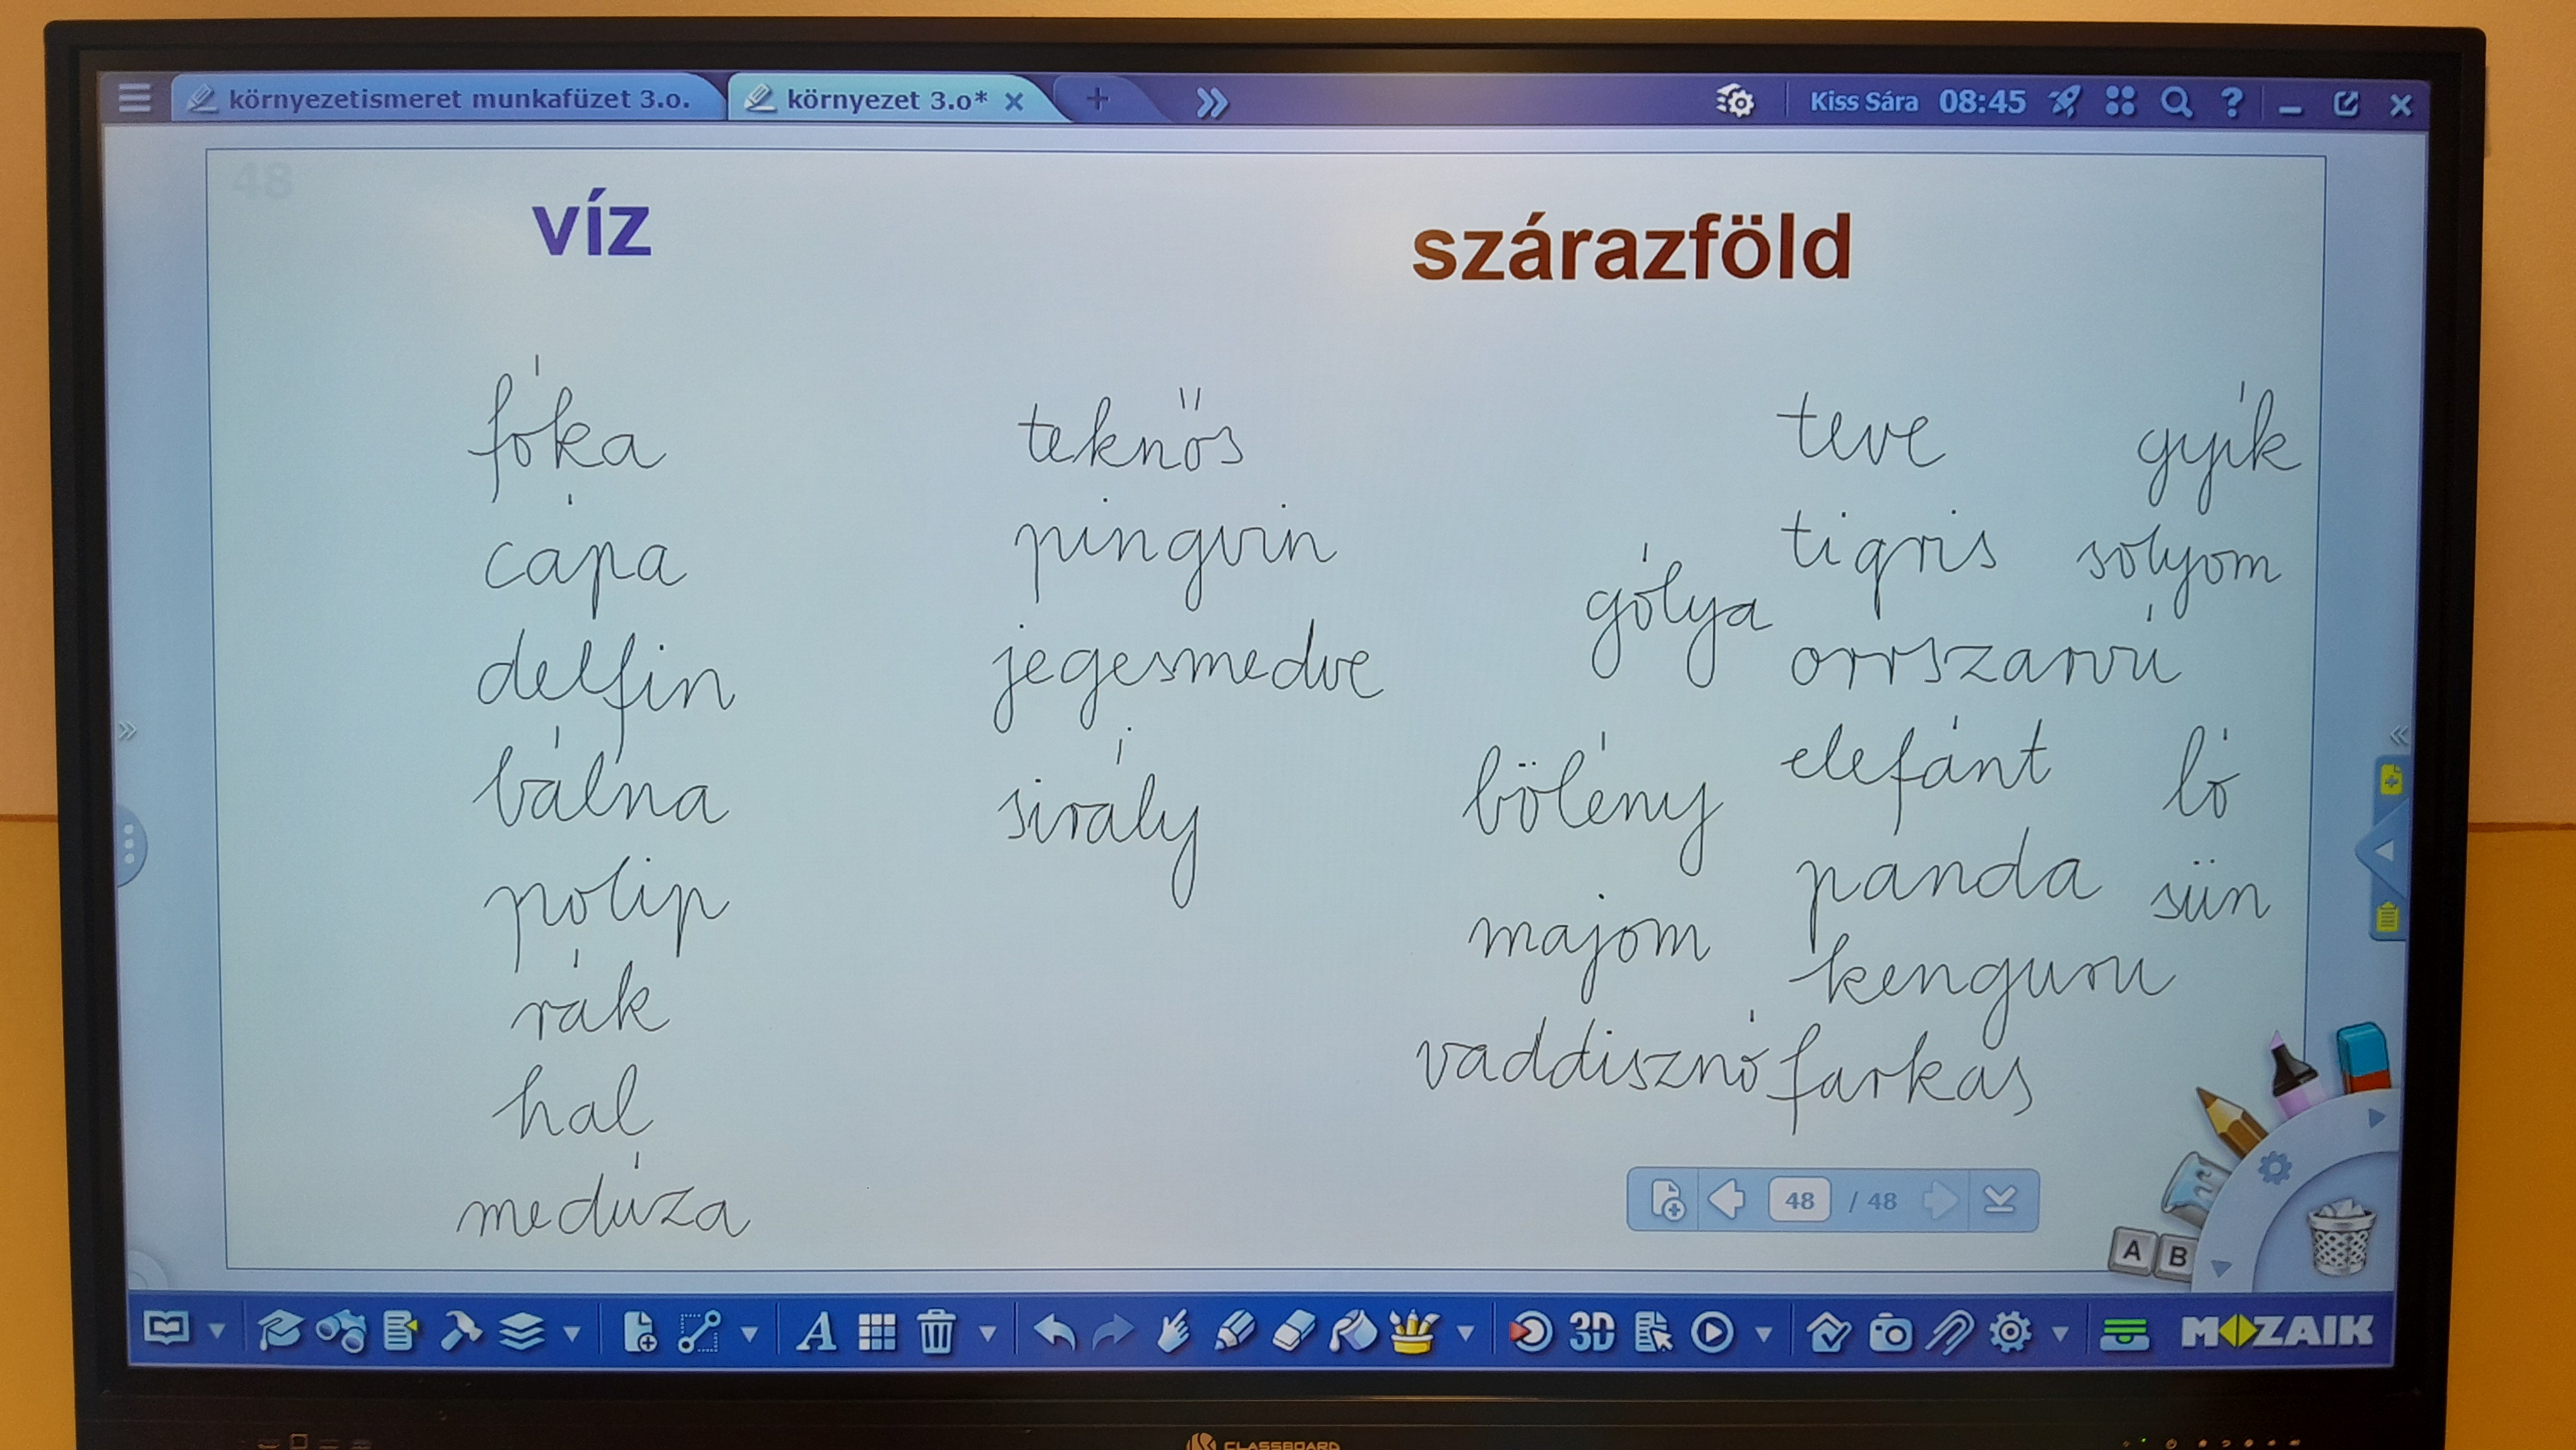 környezetismeret munkafüzet 3.o.
környezet 3.o*
Kiss Sára 08:45
48
víz
szárazföld
fóka
cápa
delfin
bálna
polip
rák
hal
medúza
teknős
pingvin
jegesmedve
sirály
gólya
bölény
majom
vaddisznó
teve
tigris
orrszarvú
elefánt
panda
kenguru
farkas
gyík
sólyom
ló
sün
48 / 48
A B
A
3D
MOZAIK
CLASSBOARD